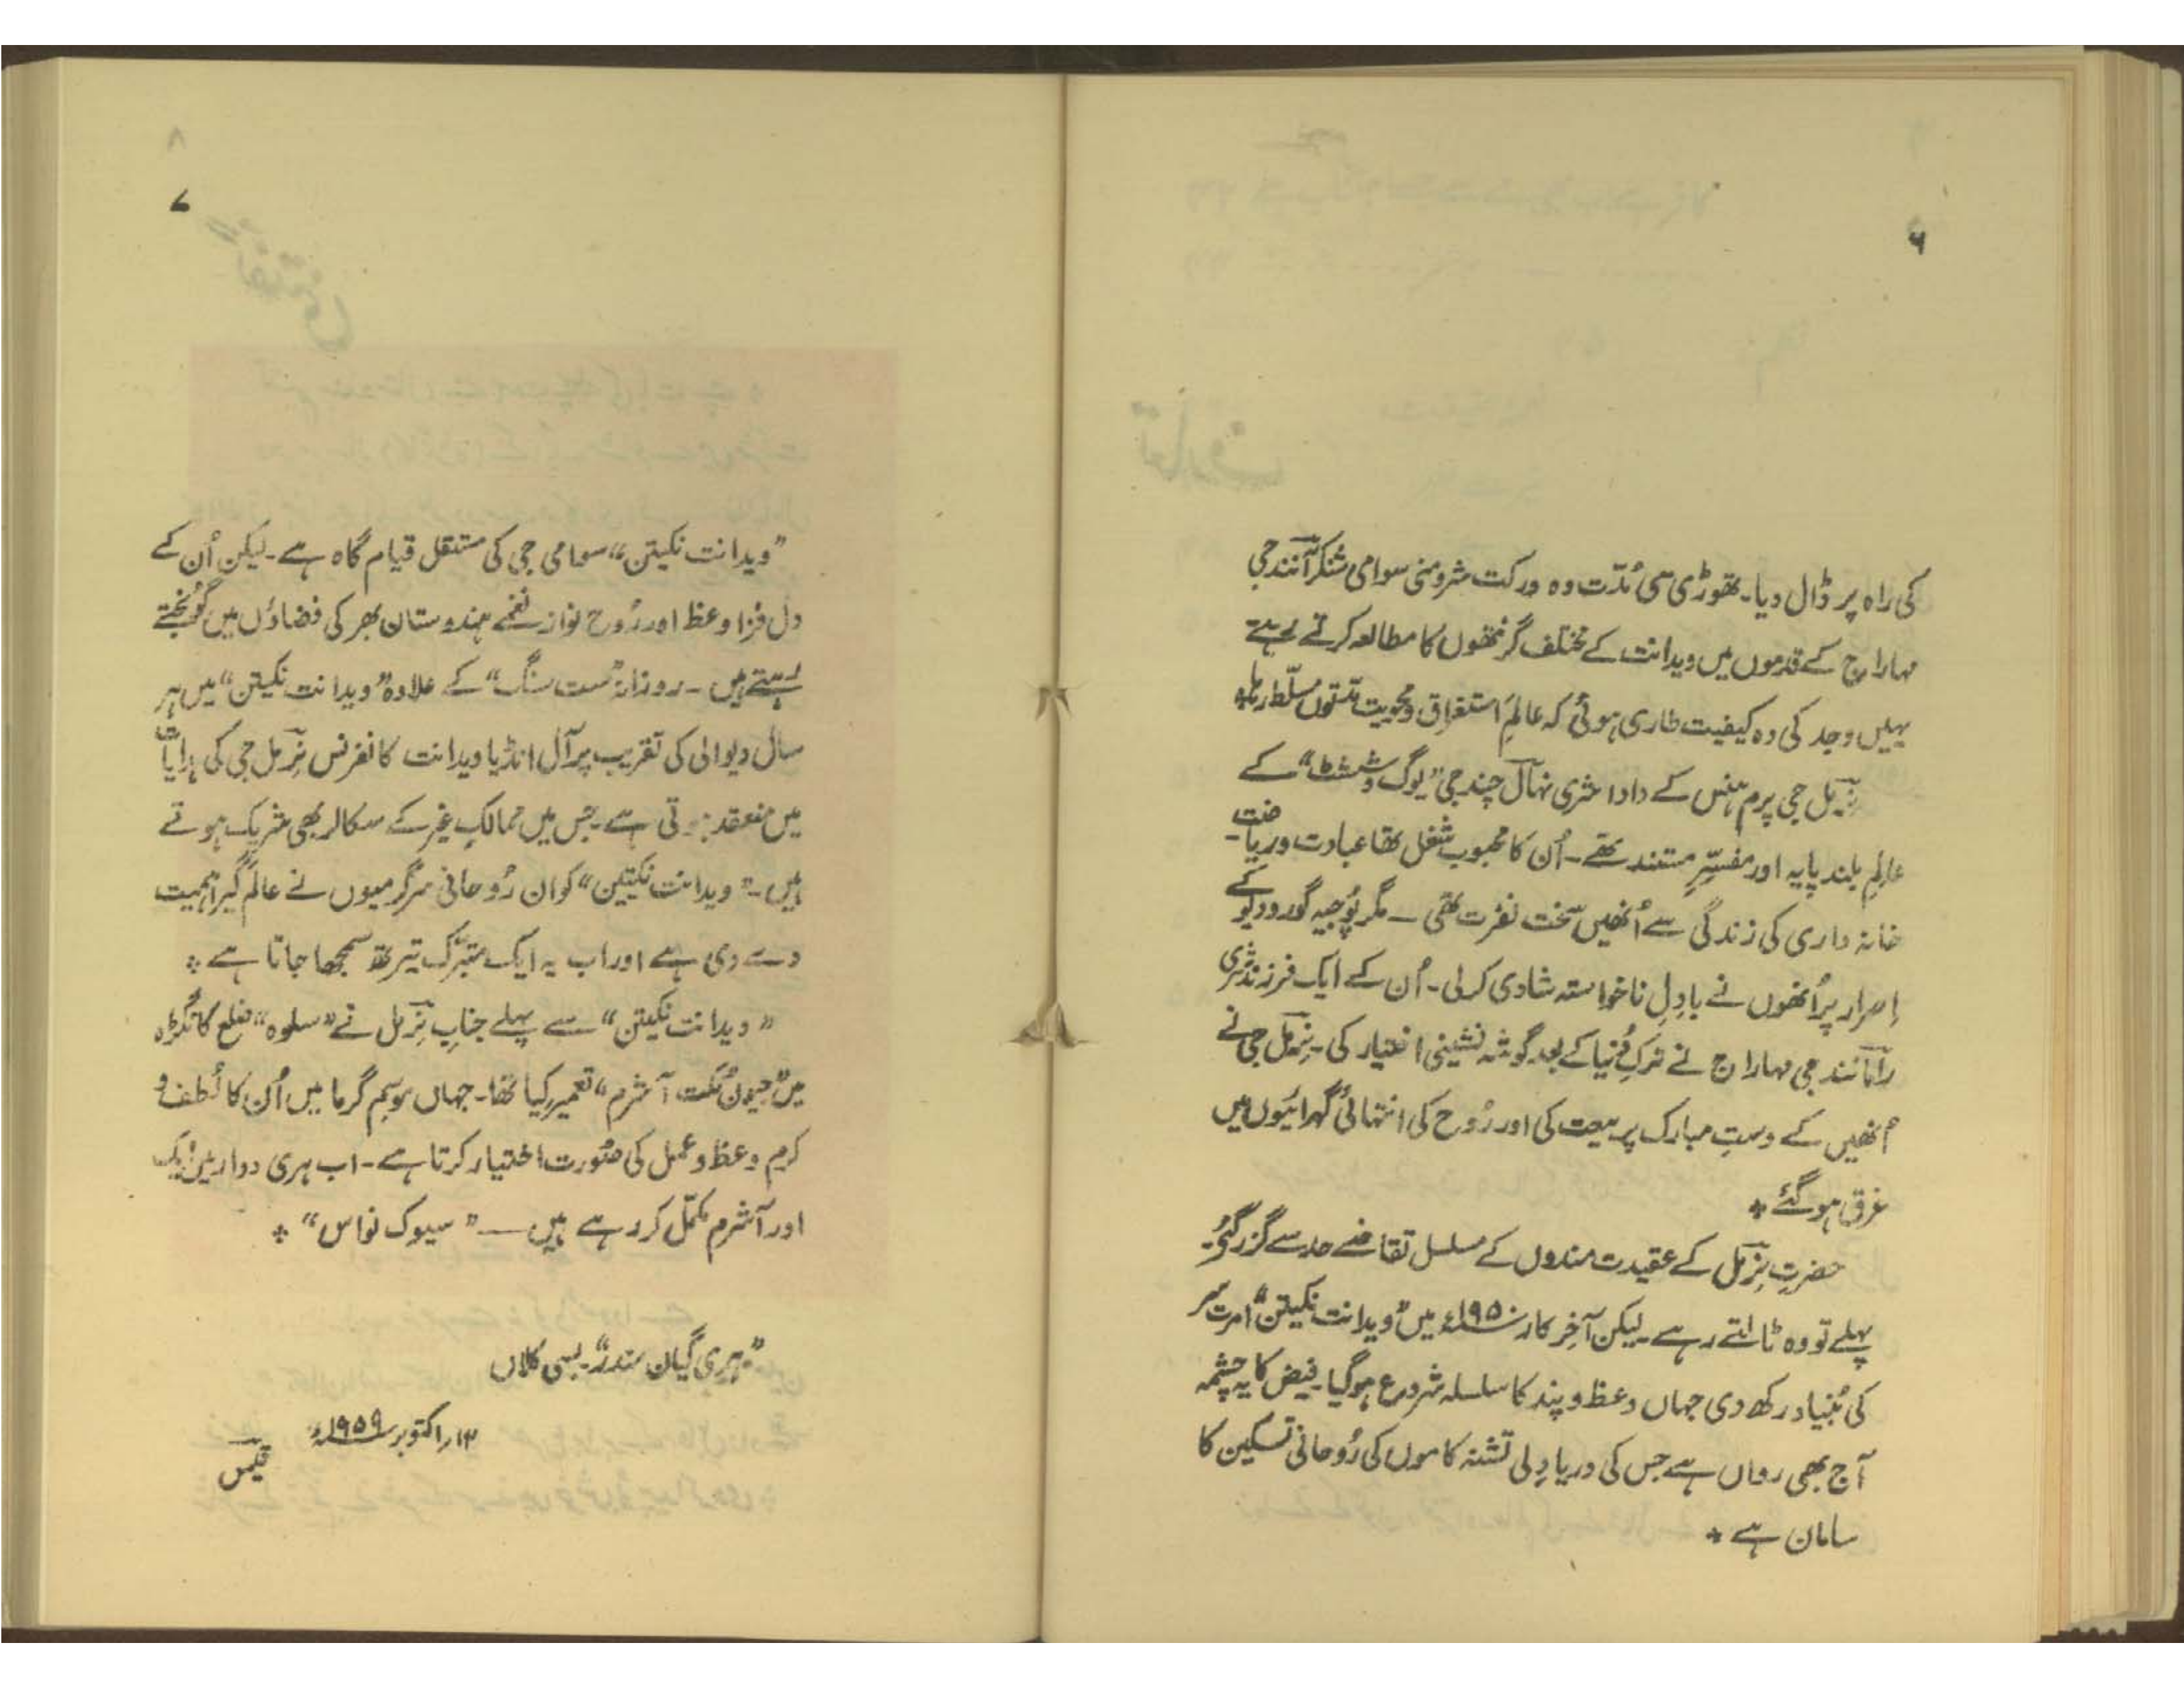 ۶
کی راہ پر ڈال دیا۔ تھوڑی سی مُدّت وہ ورکت شرومنی سوامی شنکر آنند جی
مہاراج کے قدموں میں ویدانت کے مختلف گرنتھوں کا مطالعہ کرتے رہے
یہیں وجد کی وہ کیفیت طاری ہوئی کہ عالمِ استغراق و محویت مدّتوں مسلّط رہا۔
نِرمل جی پرم ہنس کے دادا شری نہال چند جی ”یوگ وششٹ“ کے
عالمِ بلند پایہ اور مفسّرِ مستند تھے۔ اُن کا محبوب شغل تھا عبادت و ریاضت۔
خانہ داری کی زندگی سے اُنھیں سخت نفرت تھی ــ مگر پُوجیہ گورو دیو کے
اِصرار پر اُنھوں نے بادِلِ ناخواستہ شادی کرلی۔ اُن کے ایک فرزند شری
راما نند جی مہاراج نے ترکِ دُنیا کے بعد گوشہ نشینی اختیار کی۔ نِرمل جی نے
اُنھیں کے دستِ مبارک پر بیعت کی اور رُوح کی انتہائی گہرائیوں میں
غرق ہو گئے *
حضرتِ نِرمل کے عقیدت مندوں کے مسلسل تقاضے حد سے گزر گئے۔
پہلے تو وہ ٹالتے رہے۔ لیکن آخر کار ۱۹۵۰ء میں ”ویدانت نکیتن“ امرت سر
کی بُنیاد رکھ دی جہاں وعظ و پند کا سلسلہ شروع ہوگیا۔ فیض کا یہ چشمہ
آج بھی رواں ہے جس کی دریا دِلی تشنہ کاموں کی رُوحانی تسکین کا
سامان ہے *
۷
”ویدانت نکیتن“ سوامی جی کی مستقل قیام گاہ ہے۔ لیکن اُن کے
دل فزا وعظ اور رُوح نواز نغمے ہندوستان بھر کی فضاؤں میں گونجتے
رہتے ہیں ـ روزانہ ”ست سنگ“ کے علاوہ ”ویدانت نکیتن“ میں ہر
سال دیوالی کی تقریب پر آل انڈیا ویدانت کانفرنس نِرمل جی کی ہدایات
میں منعقد ہوتی ہے۔ جس میں ممالکِ غیر کے سکالر بھی شریک ہوتے
ہیں ـ ”ویدانت نکیتن“ کو ان رُوحانی سرگرمیوں نے عالم گیر اہمیت
دے دی ہے اور اب یہ ایک متبرّک تیرتھ سمجھا جاتا ہے *
”ویدانت نکیتن“ سے پہلے جنابِ نِرمل نے ”سلوہ“ ضلع کانگڑہ
میں ”جیون مُکت آشرم“ تعمیر کیا تھا۔ جہاں موسمِ گرما میں اُن کا لُطف و
کرم وعظ و عمل کی صُورت اختیار کرتا ہے۔ اب ہری دوار میں ایک
اور آشرم مکمّل کر رہے ہیں ــ ”سیوک نواس“ *
”ہری گیان مندر“ بسی کلاں
۱۳؍ اکتوبر ۱۹۵۹ء
قیس